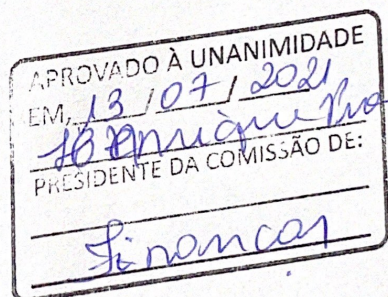 APROVADO À UNANIMIDADE
EM, 13 / 07 / 2021
PRESIDENTE DA COMISSÃO DE:
Finanças